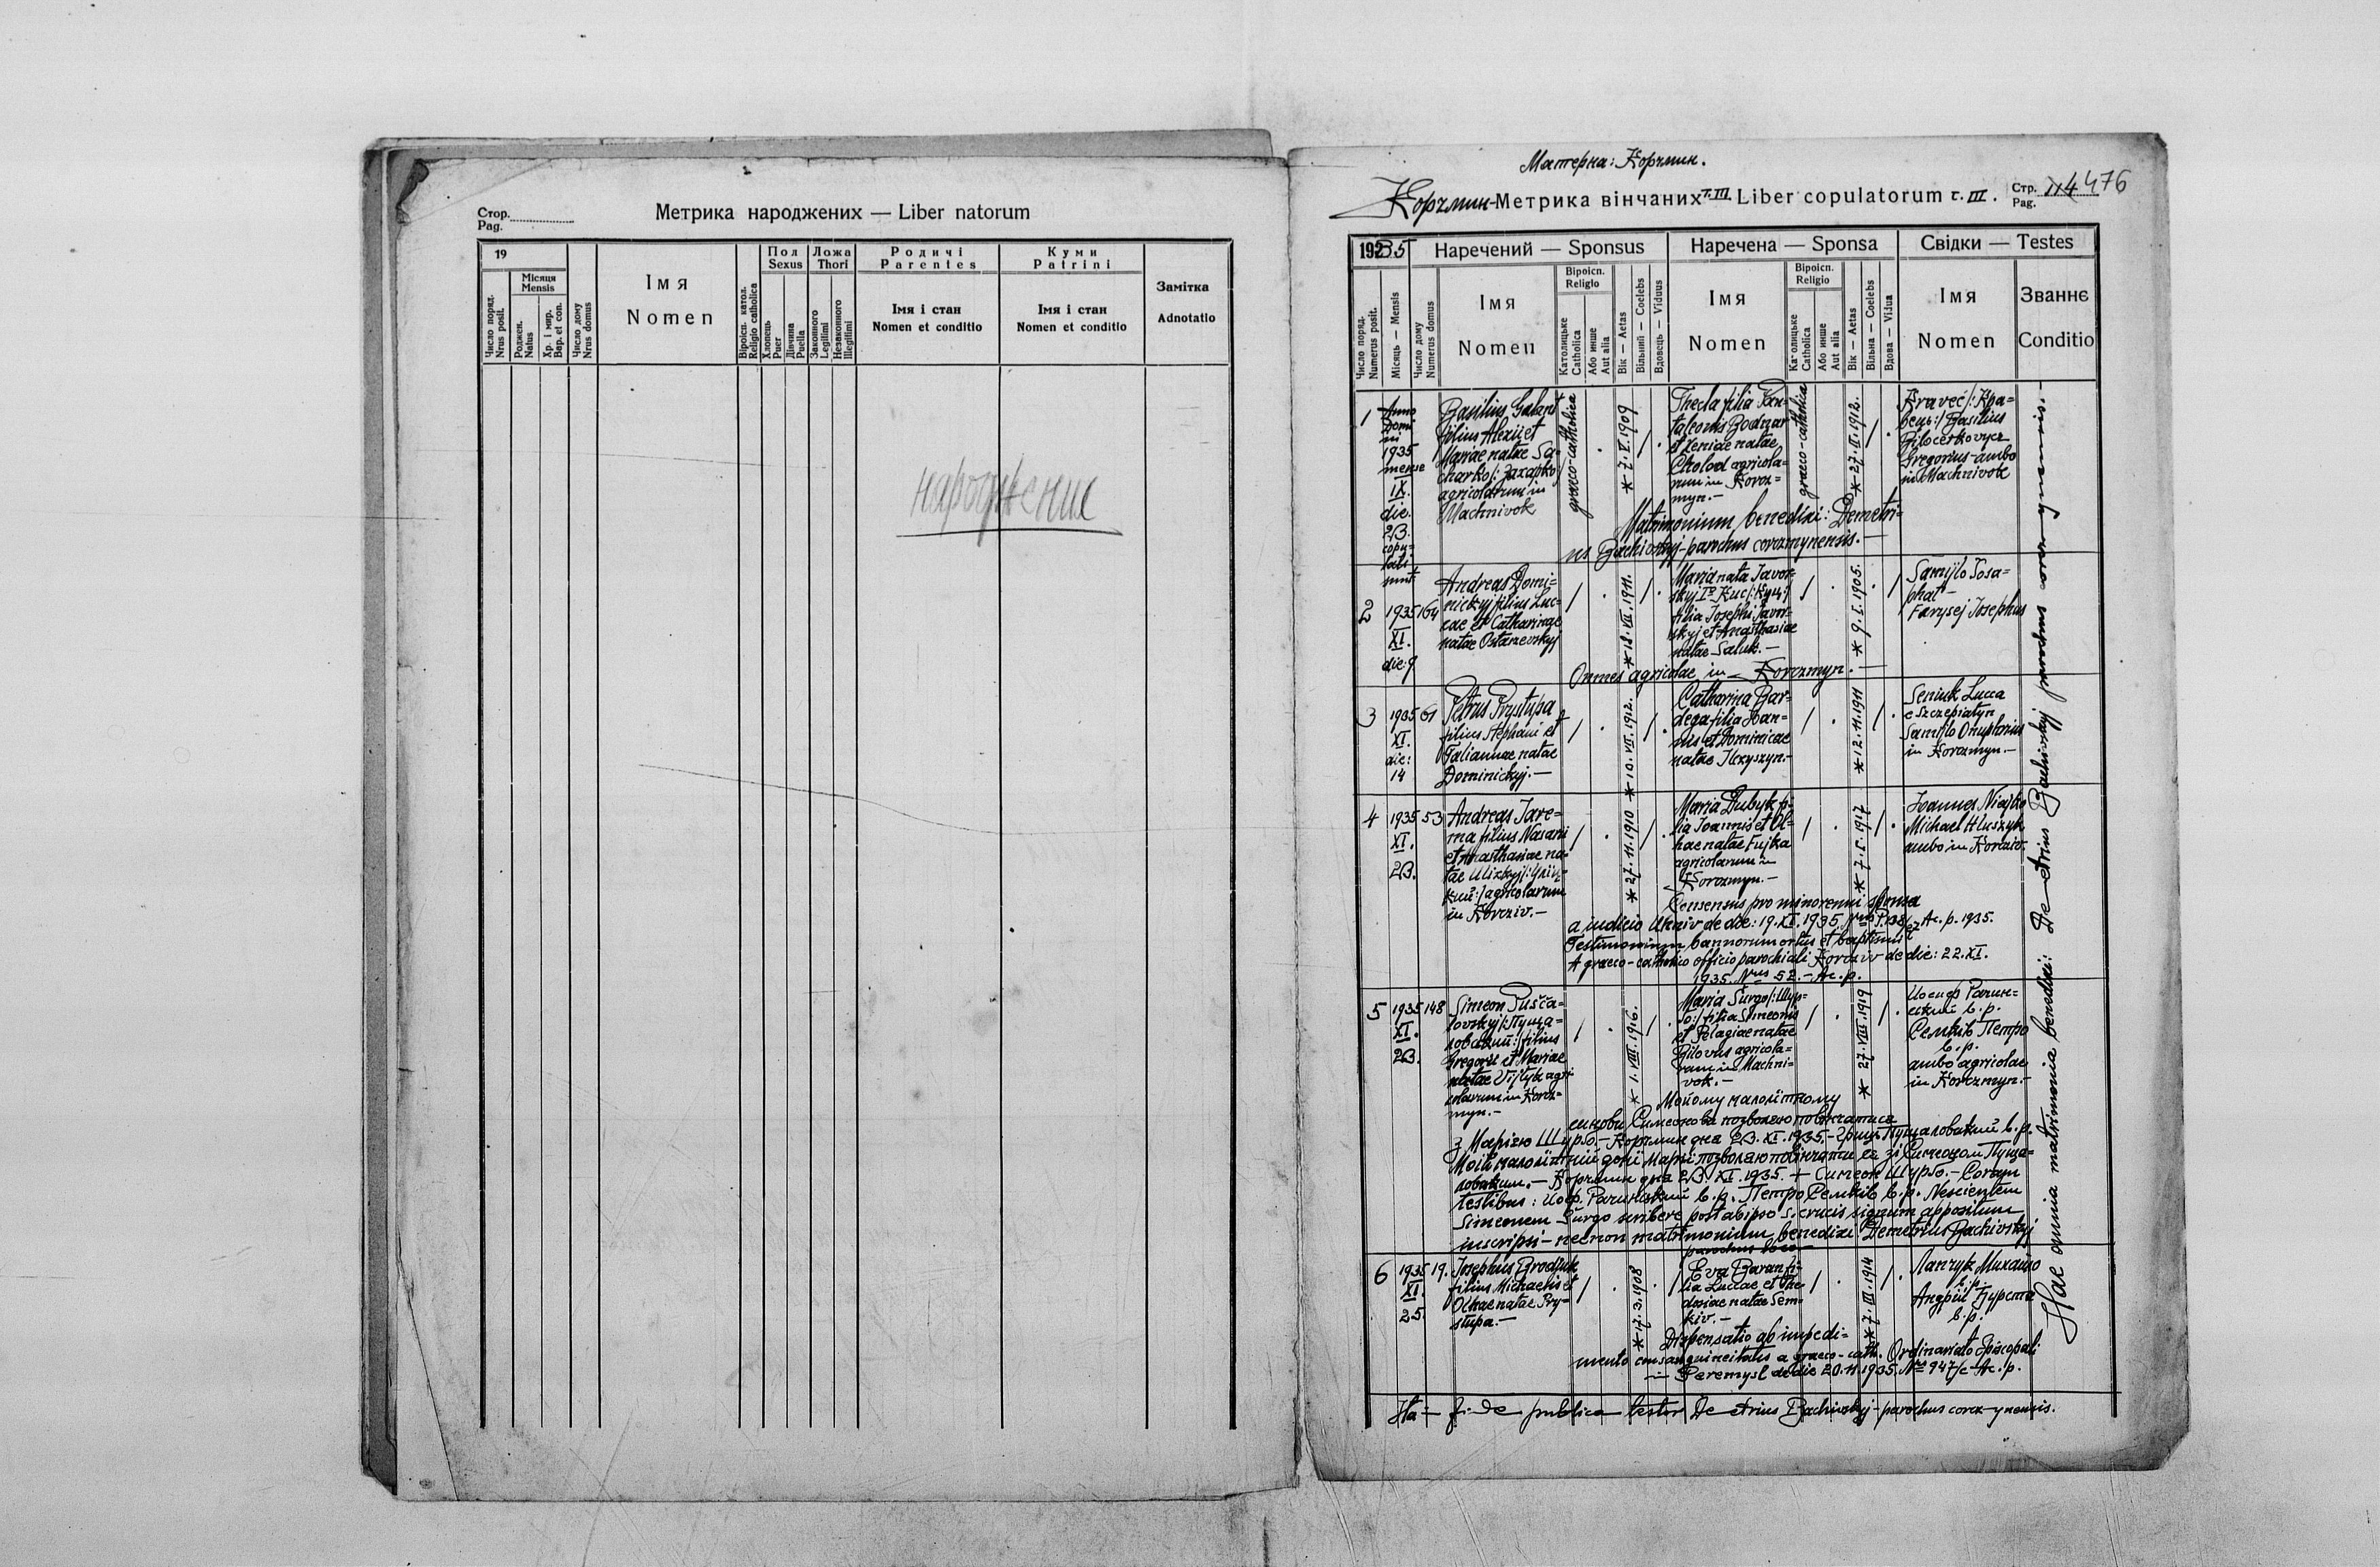 Стор.
Pag.
Метрика народжених — Liber natorum
19
Місяця
Mensis
Число поряд.
Nrus posit.
Роджен.
Natus
Хр. і мир.
Bap. et con.
Число дому
Nrus domus
Імя
Nomen
Віроісп. катол.
Religio catholica
Пол
Sexus
Хлопець
Puer
Дівчина
Puella
Ложа
Thori
Законного
Legitimi
Незаконного
Illegitimi
Родичі
Parentes
Імя і стан
Nomen et conditio
Куми
Patrini
Імя і стан
Nomen et conditio
Замітка
Adnotatio
народжение
Матерна: Корчмин.
Корчмин - Метрика вінчаних т. III. Liber copulatorum t. III.
Стр.
Pag.
114 476
1935
Наречений — Sponsus
Наречена — Sponsa
Свідки — Testes
Число поряд.
Numerus posit.
Місяць — Mensis
Число дому
Numerus domus
Імя
Nomen
Віроісп.
Religio
Католицьке
Catholica
Або инше
Aut alia
Вік — Aetas
Вільний — Coelebs
Вдовець — Viduus
Імя
Nomen
Віроісп.
Religio
Католицьке
Catholica
Або инше
Aut alia
Вік — Aetas
Вільна — Coelebs
Вдова — Vidua
Імя
Nomen
Званнє
Conditio
1
Anno
Domi
ni
1935
mense
IX.
die
23.
copu-
lati
sunt
Basilius Galant
filius Alexii et
Mariae natae Sa-
charko /: Захарко /
agricolarum in
Machnivok
graeco-catholica
* 7. V. 1909
Thecla filia Pan-
taleonis Bodnar
et Xeniae natae
Cholod agricola-
rum in Korcz-
myn. —
graeco-catholica
* 27. II. 1912.
Kravec /: Кра-
вець :/ Basilius
Bilocerkovycz
Gregorius - ambo
in Machnivok
Matrimonium benedixi: Demetri-
us Bachivskyj - parochus corczmynensis. —
2
1935
XI.
die 9
164
Andreas Domi-
nickyj filius Luc-
cae et Catharinae
natae Ostaszevskyj
* 18. VII. 1911.
Maria nata Javor-
skyj Iº Kuc /: Куц :/
filia Josephi Javor-
skyj et Anasthasiae
natae Saluk. —
* 9. I. 1905.
Samijlo Josa-
phat —
Farysej Josephus
Omnes agricolae in Korczmyn. —
3
1935
XI.
die:
14
61
Petrus Prystupa
filius Stephani et
Taliannae natae
Dominickyj. —
* 10. VII. 1912.
Catharina Bar-
dega filia Ioan-
nis et Dominicae
natae Ilczyszyn. —
* 12. 11. 1911
Seniuk Lucca
e Szczepiatyn
Samijlo Onuphrius
in Korczmyn. —
4
1935
XI.
23.
53
Andreas Jare-
ma filius Nasarii
et Anasthasiae na-
tae Ulickyj /: Уліц-
кий :/ agricolarum
in Korcziv. —
* 27. 11. 1910
Maria Dubyk fi-
lia Joannis et Ol-
hae natae Fujka
agricolarum in
Korczmyn. —
* 7. I. 1917
Ioannes Niejko
Michael Hluszyk
ambo in Korcziv.
Consensus pro minorenni sponsa
a iudicio Uhniv de die: 19. XI. 1935. Nrus P. 138/ Ac. p. 1935.
Testimonium bannorum ortus et baptismi
A graeco-catholico officio parochiali Korcziv de die: 22. XI.
1935. Nrus 52. — Ac. p.
5
1935
XI.
23.
148
Simeon Pušča-
lovskyj /: Пуща-
ловский :/ filius
Gregorii et Mariae
natae Vijtyk agri-
colarum in Korcz-
myn. —
* 1. VIII. 1916.
Maria Surgo /: Шур-
ґо :/ filia Simeonis
et Pelagiae natae
Bilovus agricola-
rum in Machni-
vok. —
* 27. VIII. 1919
Иосиф Рачин-
ский в. р.
Семків Петро
в. р.
ambo agricolae
in Korczmyn. —
Мойому малолітному
синови Симеонови позволяю повінчатися
з Марією Шурґо. — Корчмин дня 23. XI. 1935. — Гриць Пущаловский в. р.
Моїй малолітній доні Марії позволяю повінчати ся зі Симеоном Пуща-
ловским. — Корчмин дня 23. XI. 1935. + Симеон Шурґо. — Coram
testibus: Иосиф Рачиньский в. р. Петро Семків в. р. Nescientem
Simeonem Surgo scribere post ab ipso s. crucis signum appositum
inscripsi — necnon matrimonium benedixi Demetrius Bachivskyj
parochus loco —
6
1935
XI.
25.
19.
Josephus Brodjuk
filius Michaelis et
Olhae natae Pry-
stupa. —
* 17. 3. 1908
Eva Baran fi-
lia Luccae et The-
dosiae natae Sem-
kiv. —
* 7. III. 1914
Лапчук Михайло
в. р.
Андрій Бурста
в. р.
Dispensatio ab impedi-
mento consanguineitatis a graeco-cath. Ordinariato Episcopali
in Peremysl de die 20. 11. 1935. Nrus 947/c Ac. p.
fide publica testor Demetrius Bachivskyj - parochus corczmynensis.
Haec omnia matrimonia benedixi: Demetrius Bachivskyj parochus corczmynensis. —